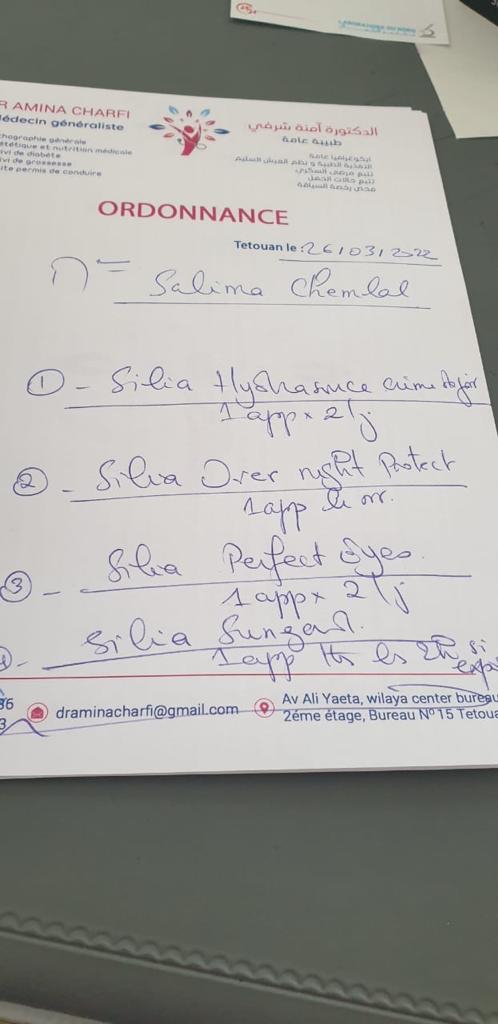 R AMINA CHARFI
édecin généraliste
hographie générale
ététique et nutrition médicale
ivi de diabète
ivi de grossesse
ite permis de conduire
الدكتورة آمنة شرفي
طبيبة عامة
ايكوغرافيا عامة
التغذية الطبية و نظم العيش السليم
تتبع مرضى السكري
تتبع حالات الحمل
فحص رخصة السياقة
ORDONNANCE
Tetouan le : 26/03/2022
Salima Chemlal
① - Silia crème
1 app x 2/j
② - Silia Over night Protect
1 app le
③ - Silia Perfect Eyes
1 app x 2/j
Silia
1 app les 2h si
36
3
draminacharfi@gmail.com
Av Ali Yaeta, wilaya center bureau
2éme étage, Bureau N°15 Tetoua